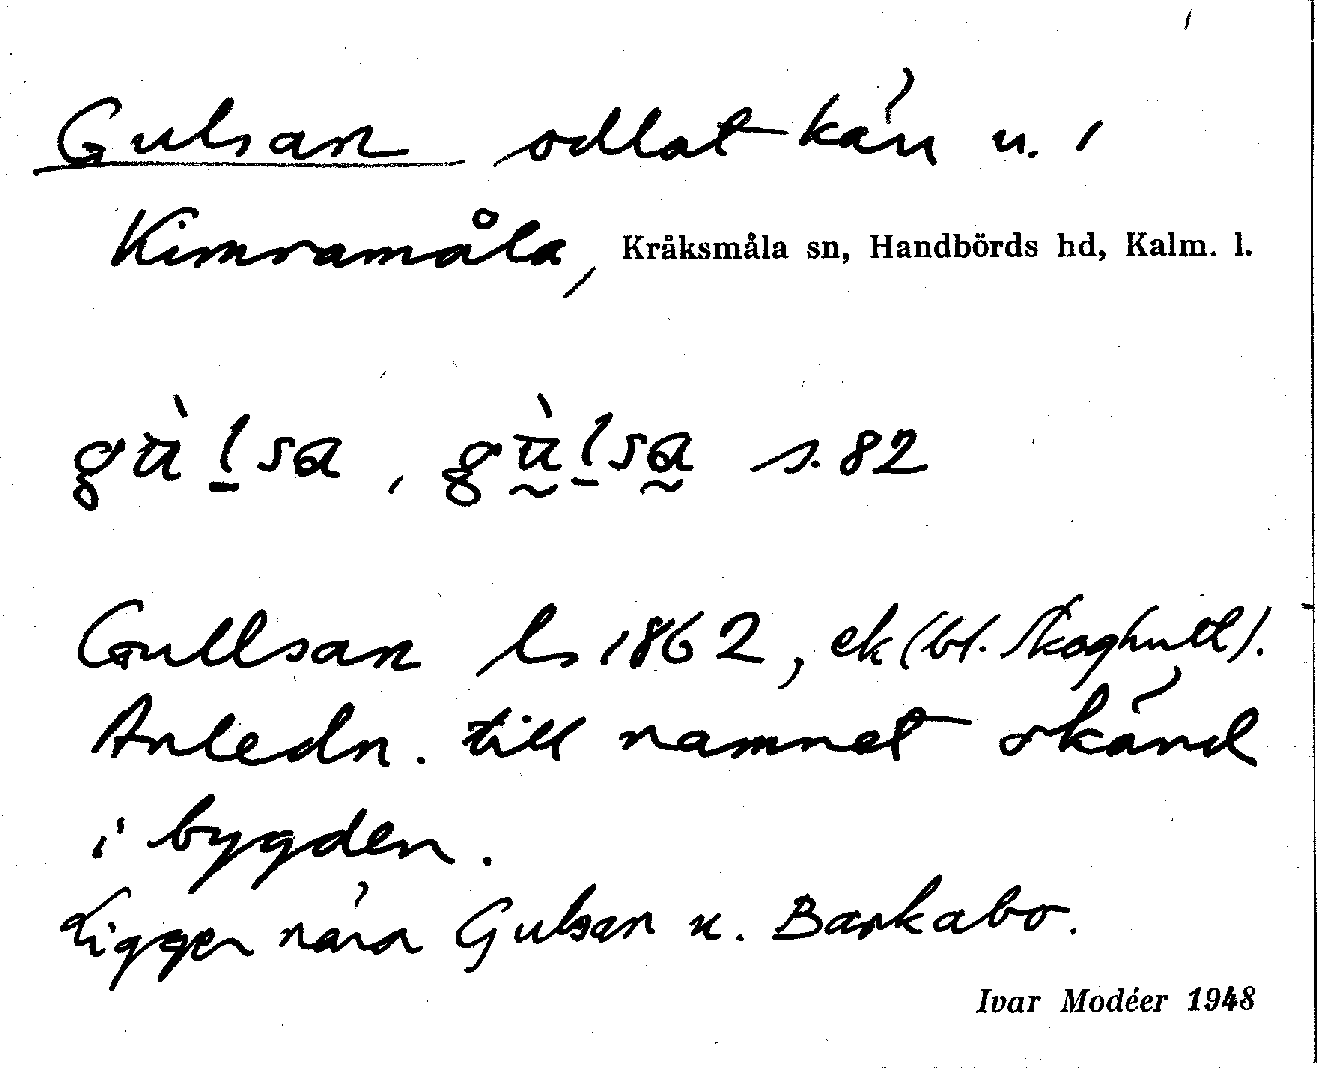 Gulsan odlat kärr u. 1
Kimramåla, Kråksmåla sn, Handbörds hd, Kalm. l.
gùḷsa, gùḷsa s. 82
Gullsan ls 1862, ek (bl. Skoghult).
Anledn. till namnet okänd
i bygden.
Ligger nära Gulsan u. Barkabo.
Ivar Modéer 1948